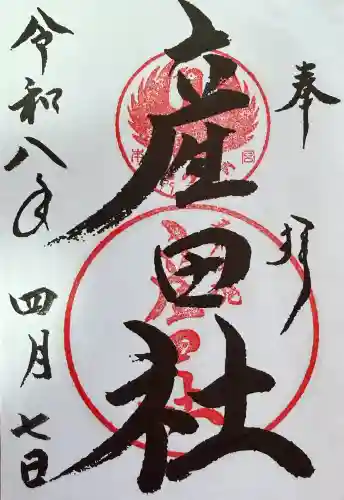 奉拝
産田社
令和八年
四月七日